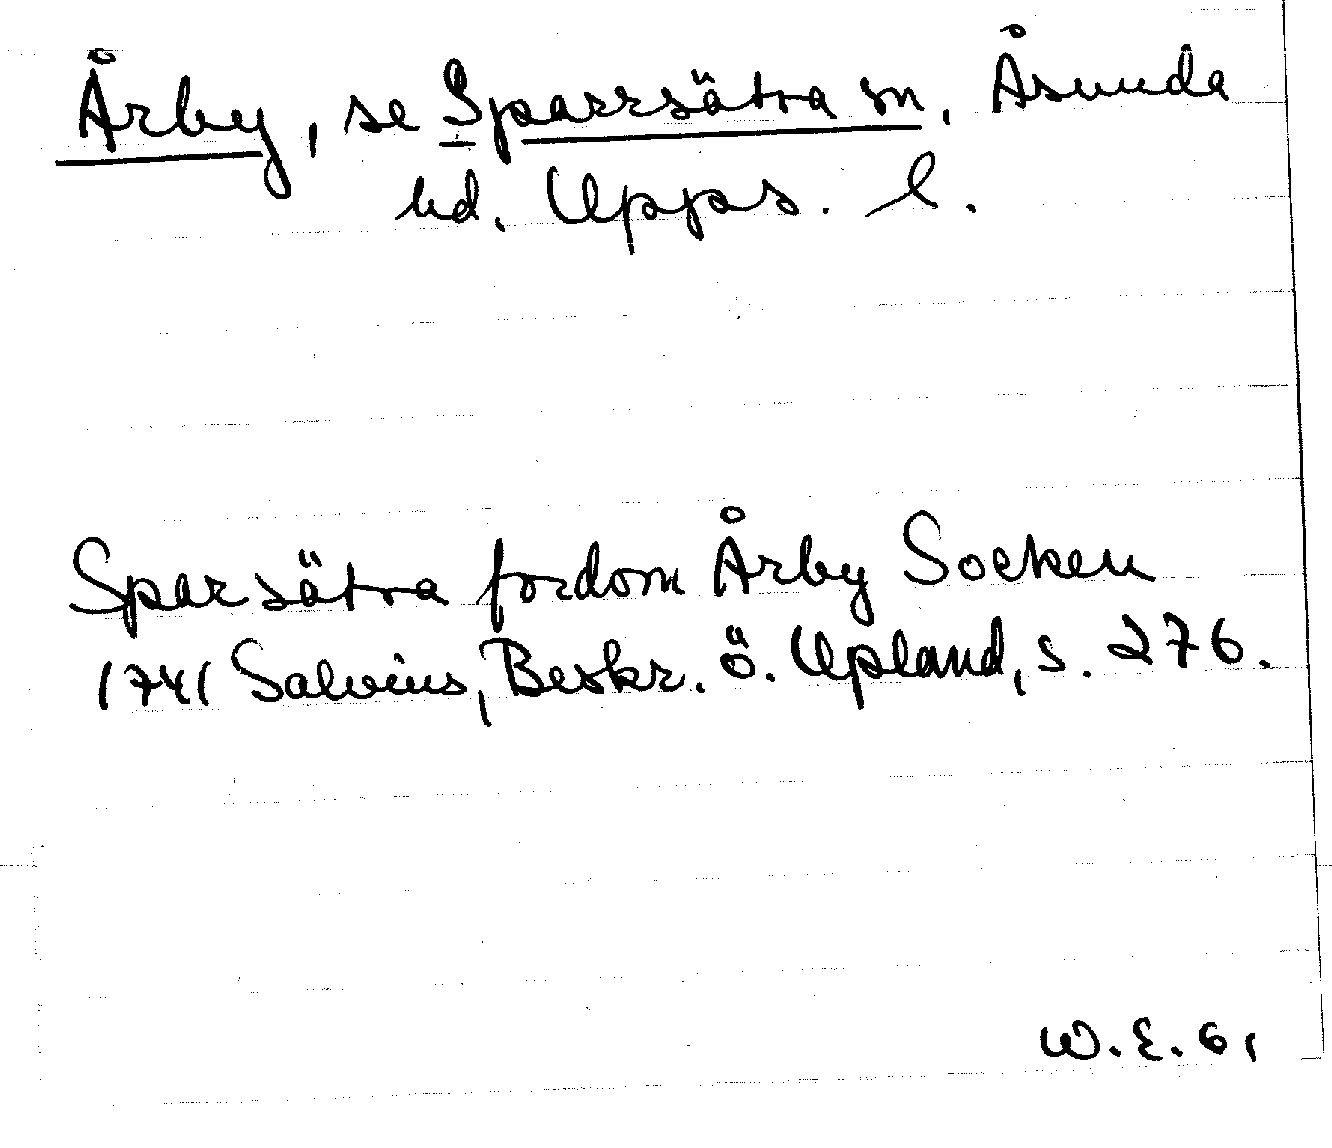 Årby, se Sparrsätra sn, Åsunda
hd. Upps. l.
Sparsätra fordom Årby Socken
1741 Salvius, Beskr. ö. Upland, s. 276.
W. E. 61